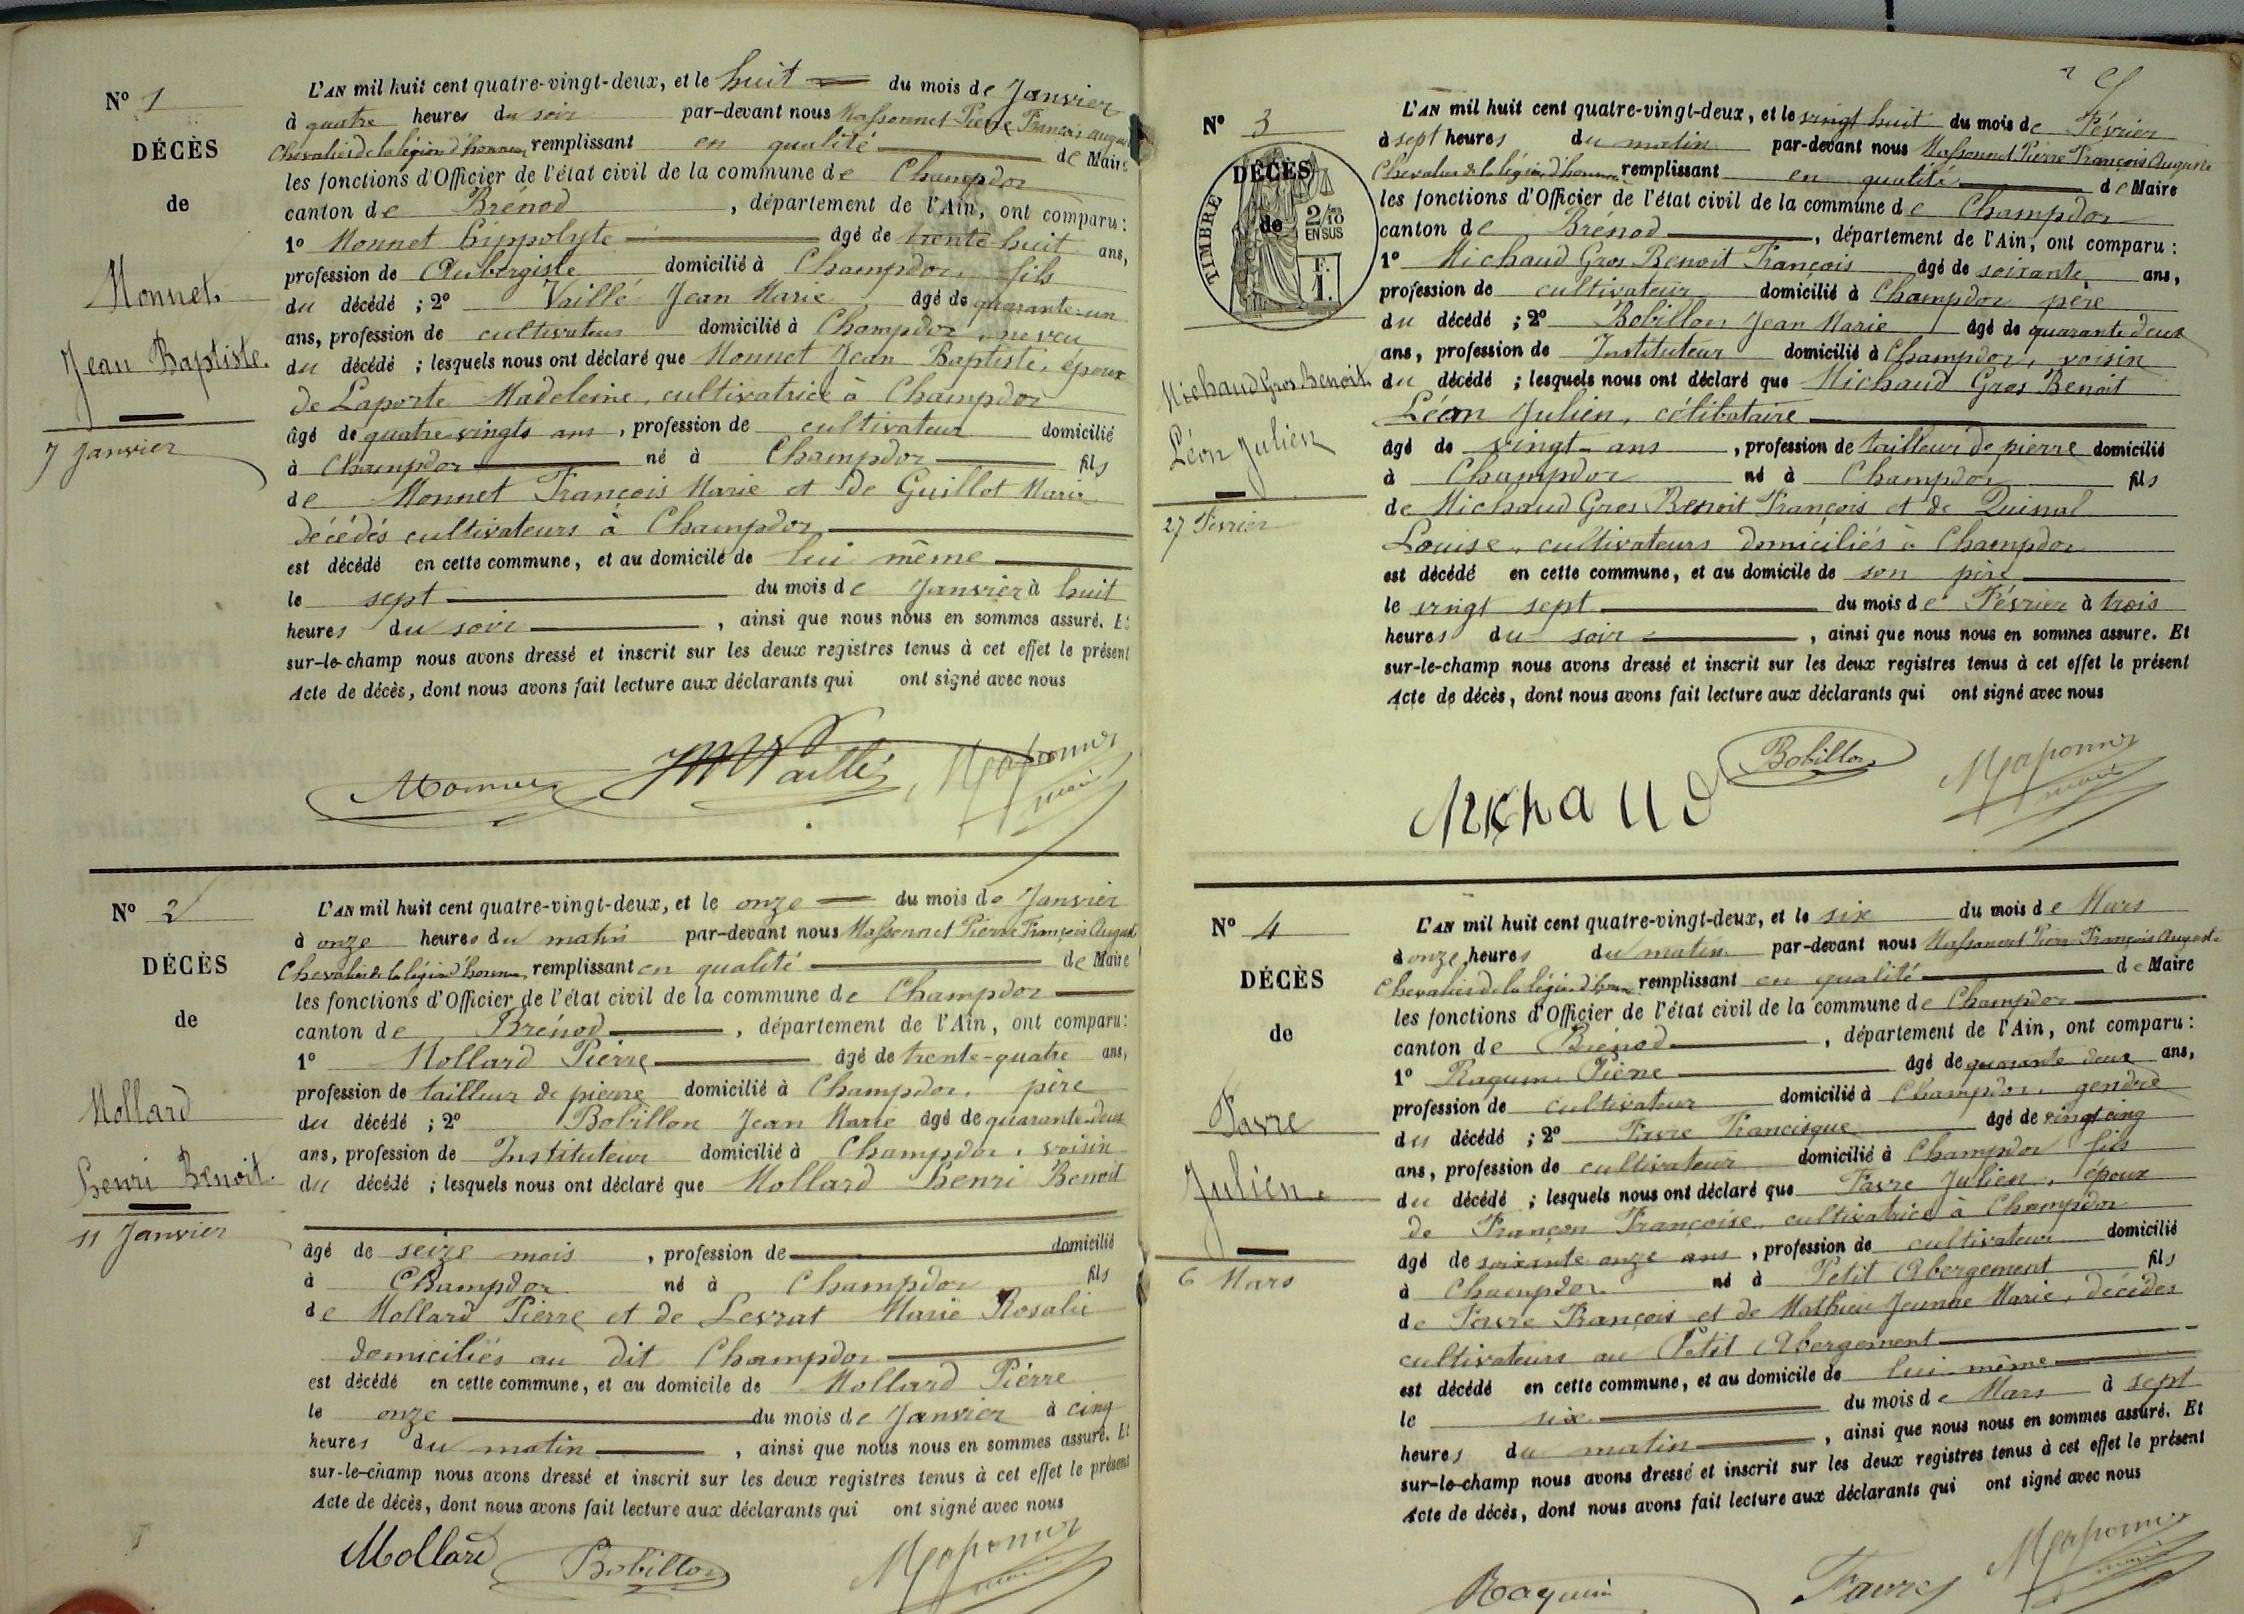 N° 1
DÉCÈS
de
Monnet
Jean Baptiste.
7 Janvier
L'AN mil huit cent quatre-vingt-deux, et le huit du mois de Janvier
à quatre heures du soir par-devant nous Massonnet Pierre François Auguste
Chevalier de la légion d'honneur remplissant en qualité de Maire
les fonctions d'Officier de l'état civil de la commune de Champdor
canton de Brénod, département de l'Ain, ont comparu:
1° Monnet hippolyte âgé de trente huit ans,
profession de Aubergiste domicilié à Champdor, fils
du décédé ; 2° Vaillé Jean Marie âgé de quarante-un
ans, profession de cultivateur domicilié à Champdor, neveu
du décédé ; lesquels nous ont déclaré que Monnet Jean Baptiste, époux
de Laporte Madeleine, cultivatrice à Champdor
âgé de quatre vingts ans, profession de cultivateur domicilié
à Champdor né à Champdor fils
de Monnet François Marie et de Guillot Marie
décédés cultivateurs à Champdor
est décédé en cette commune, et au domicile de lui même
le sept du mois de Janvier à huit
heures du soir, ainsi que nous nous en sommes assuré. Et
sur-le-champ nous avons dressé et inscrit sur les deux registres tenus à cet effet le présent
Acte de décès, dont nous avons fait lecture aux déclarants qui ont signé avec nous
Monnet JM Vaillé Massonnet maire
N° 2
DÉCÈS
de
Mollard
henri Benoit.
11 Janvier
L'AN mil huit cent quatre-vingt-deux, et le onze du mois de Janvier
à onze heures du matin par-devant nous Massonnet Pierre François August
Chevalier de la légion d'honneur remplissant en qualité de Maire
les fonctions d'Officier de l'état civil de la commune de Champdor
canton de Brénod, département de l'Ain, ont comparu:
1° Mollard Pierre âgé de trente-quatre ans,
profession de tailleur de pierre domicilié à Champdor, père
du décédé ; 2° Bobillon Jean Marie âgé de quarante-deux
ans, profession de Instituteur domicilié à Champdor, voisin
du décédé ; lesquels nous ont déclaré que Mollard henri Benoit
âgé de seize mois, profession de domicilié
à Champdor né à Champdor fils
de Mollard Pierre et de Levrat Marie Rosalie
domiciliés au dit Champdor
est décédé en cette commune, et au domicile de Mollard Pierre
le onze du mois de Janvier à cinq
heures du matin, ainsi que nous nous en sommes assuré. Et
sur-le-champ nous avons dressé et inscrit sur les deux registres tenus à cet effet le présent
Acte de décès, dont nous avons fait lecture aux déclarants qui ont signé avec nous
Mollard Bobillon Massonnet maire
N° 3
DÉCÈS
de
TIMBRE
2/10 EN SUS
F. 1.
Michaud Gros Benoit.
Léon Julien
27 Février
L'AN mil huit cent quatre-vingt-deux, et le vingt huit du mois de Février
à sept heures du matin par-devant nous Massonnet Pierre François Auguste
Chevalier de la légion d'honneur remplissant en qualité de Maire
les fonctions d'Officier de l'état civil de la commune de Champdor
canton de Brénod, département de l'Ain, ont comparu :
1° Michaud Gros Benoit François âgé de soixante ans,
profession de cultivateur domicilié à Champdor père
du décédé ; 2° Bobillon Jean Marie âgé de quarante deux
ans, profession de Instituteur domicilié à Champdor, voisin
du décédé ; lesquels nous ont déclaré que Michaud Gros Benoit
Léon Julien, célibataire
âgé de vingt ans, profession de tailleur de pierre domicilié
à Champdor né à Champdor fils
de Michaud Gros Benoit François et de Quinal
Louise, cultivateurs domiciliés à Champdor
est décédé en cette commune, et au domicile de son père
le vingt sept du mois de Février à trois
heures du soir, ainsi que nous nous en sommes assuré. Et
sur-le-champ nous avons dressé et inscrit sur les deux registres tenus à cet effet le présent
Acte de décès, dont nous avons fait lecture aux déclarants qui ont signé avec nous
Michaud Bobillon Massonnet maire
N° 4
DÉCÈS
de
Favre
Julien.
6 Mars
L'AN mil huit cent quatre-vingt-deux, et le six du mois de Mars
à onze heures du matin par-devant nous Massonnet Pierre François Auguste
Chevalier de la légion d'honneur remplissant en qualité de Maire
les fonctions d'Officier de l'état civil de la commune de Champdor
canton de Brénod, département de l'Ain, ont comparu :
1° Raguin Pierre âgé de quarante deux ans,
profession de cultivateur domicilié à Champdor, gendre
du décédé ; 2° Favre Francisque âgé de vingt cinq
ans, profession de cultivateur domicilié à Champdor fils
du décédé ; lesquels nous ont déclaré que Favre Julien, époux
de Françon Françoise, cultivatrice à Champdor
âgé de soixante onze ans, profession de cultivateur domicilié
à Champdor né à Petit Abergement fils
de Favre François et de Mathieu Jeanne Marie, décédés
cultivateurs au Petit Abergement
est décédé en cette commune, et au domicile de lui même
le six du mois de Mars à sept
heures du matin, ainsi que nous nous en sommes assuré. Et
sur-le-champ nous avons dressé et inscrit sur les deux registres tenus à cet effet le présent
Acte de décès, dont nous avons fait lecture aux déclarants qui ont signé avec nous
Raguin Favre Massonnet maire